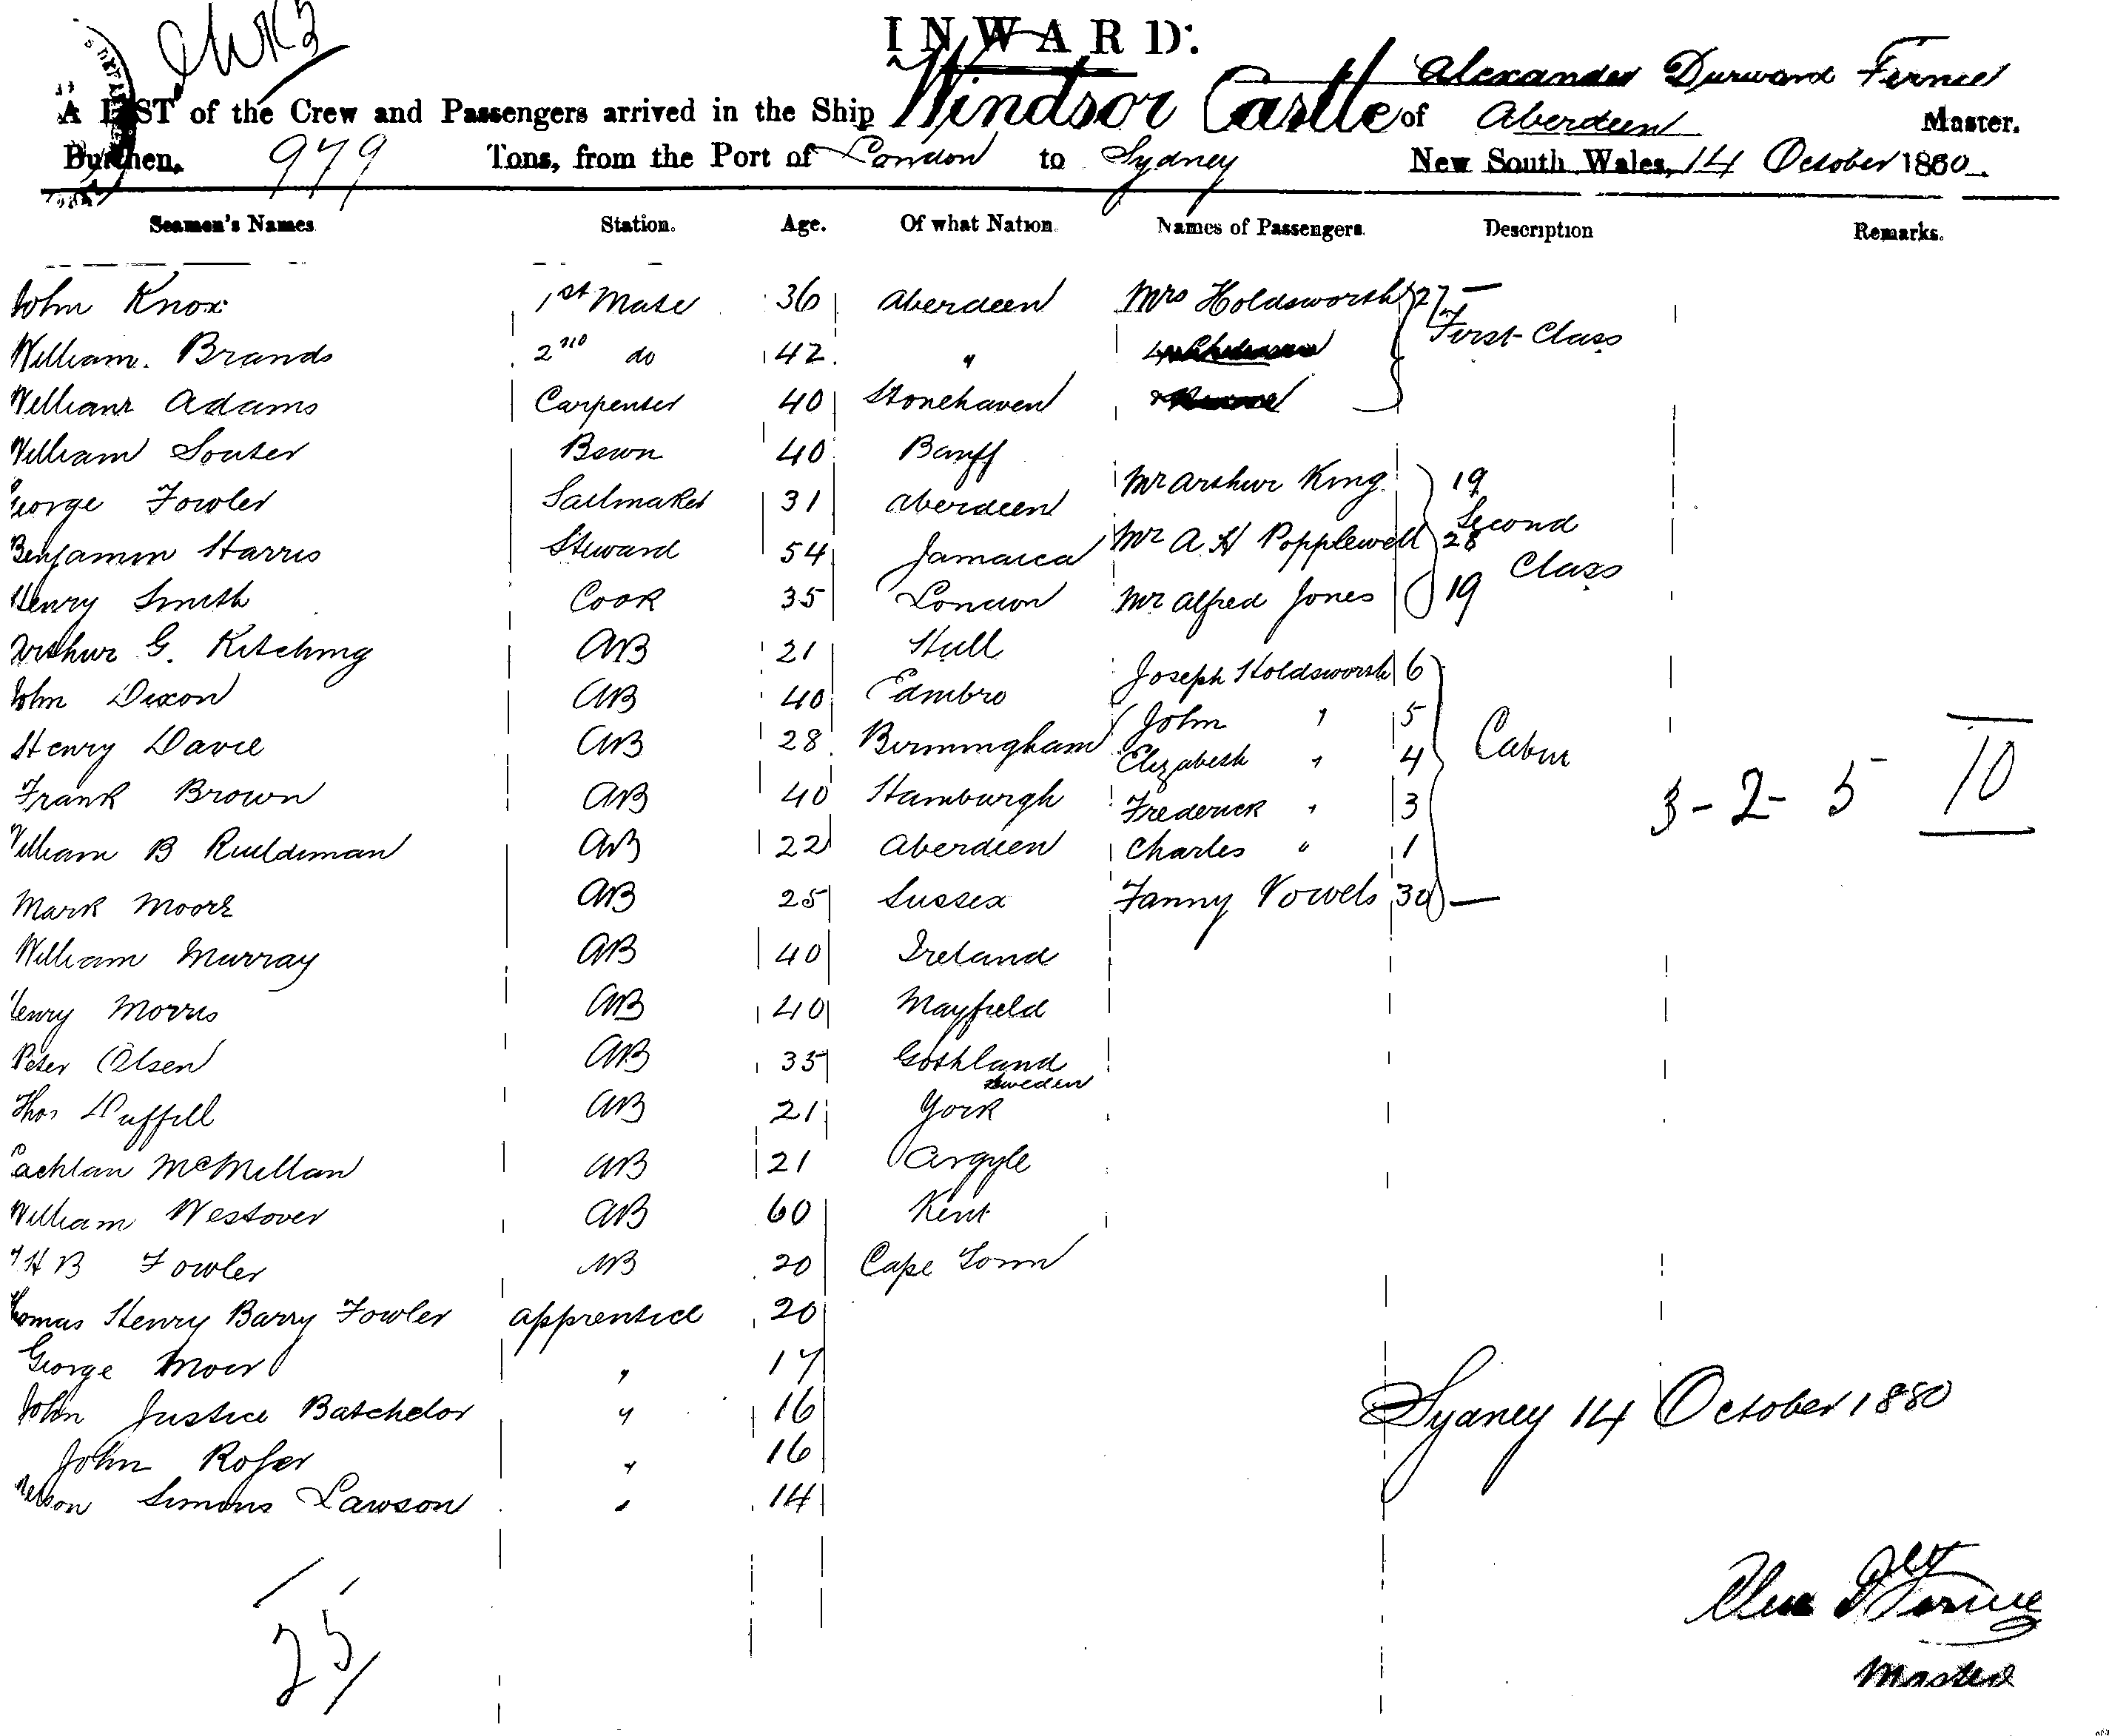 INWARD.
Alexander Durward Fernie
A LIST of the Crew and Passengers arrived in the Ship Windsor Castle of Aberdeen Master.
Burthen, 979 Tons, from the Port of London to Sydney New South Wales, 14 October 1880.
Seamen's Names Station. Age. Of what Nation. Names of Passengers. Description Remarks.
John Knox 1st Mate 36 Aberdeen Mrs Holdsworth 27 —
First Class
William Brands 2nd do 42 "
William Adams Carpenter 40 Stonehaven
William Souter Bswn 40 Banff
Mr Arthur King 19
George Fowler Sailmaker 31 Aberdeen
Second
Benjamin Harris Steward 54 Jamaica Mr A H Popplewell 28
Class
Henry Smith Cook 35 London Mr Alfred Jones 19
Arthur G. Kitching AB 21 Hull
Joseph Holdsworth 6
John Dixon AB 40 Edinbro
John " 5
Henry Davie AB 28 Birmingham
Elizabeth " 4 Cabin
Frank Brown AB 40 Hamburgh Frederick " 3
3 - 2 - 5 10
William B Ruddiman AB 22 Aberdeen Charles " 1
Mark Moore AB 25 Sussex Fanny Vowels 30 —
William Murray AB 40 Ireland
Henry Morris AB 40 Mayfield
Peter Olsen AB 35 Gothland
Sweden
Thos Duffill AB 21 York
Lachlan McMillan AB 21 Argyle
William Westover AB 60 Kent
T H B Fowler AB 20 Cape Town
Thomas Henry Barry Fowler apprentice 20
George Moir " 17
John Justice Batchelor " 16
Sydney 14 October 1880
John Roser " 16
Nelson Simons Lawson " 14
25
Alex D Fernie
Master